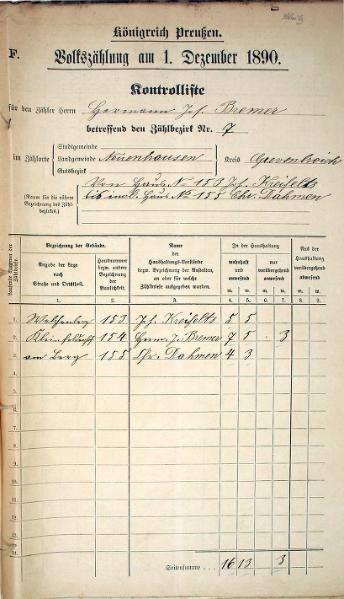 Königreich Preußen.
F. Volkszählung am 1. Dezember 1890.
Kontrolliste
für den Zähler Herrn Hermann Jos. Bremer
betreffend den Zählbezirk Nr. 7
Stadtgemeinde
im Zählorte Landgemeinde Neuenhausen Kreis Grevenbroich
Gutsbezirk
Von Haus No 153 Jos. Kreifelts
(Raum für die nähere Bezeichnung des Zählbezirks.) bis incl. Haus No 155 Chr. Dahmen
Bezeichnung der Gebäude.
Angabe der Lage nach Straße und Ortsteil.
1.
Hausnummer bezw. andere Bezeichnung der Baulichkeit.
2.
Name der Haushaltungs-Vorstände bezw. Bezeichnung der Anstalten, an oder für welche Zählbriefe ausgegeben wurden.
3.
In der Haushaltung
wohnhaft und anwesend
m. w.
4. 5.
nur vorübergehend anwesend
m. w.
6. 7.
Aus der Haushaltung vorübergehend abwesend
m. w.
8. 9.
1. 153 Jos. Kreifelts 5 5
2. 154 Herm. J. Bremer 7 5 3
3. am Berg 155 Chr. Dahmen 4 3
Seitensumme 16 13 3